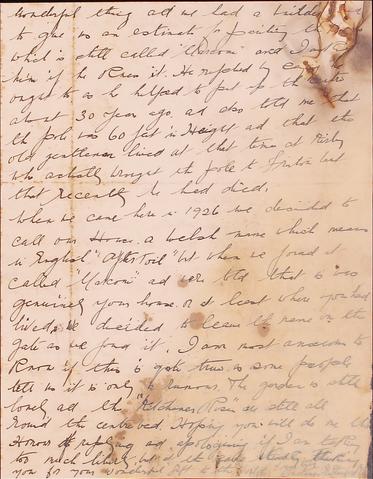 Wonderful thing ad we had a builder
to give us an estimate for painting the
which is still called "Marconi" and I asked
him if he knew it. He replied by
ought to as he helped to put up the
about 30 year ago, ad also told me that
the pole was 60 feet in Height ad that the
old gentleman lived at that time at
who actually brought the pole to but
that recently he had died.
When we came here in 1926 we decided to
call our House. a Welsh name which means
in English "After Toil" but when we found it
called "Marconi" ad were told that it was
genuinely your house. or at least where you had
lived, we decided to leave the name on the
gate as we found it. I am most anxious to
Know if this is quite true, as some people
tell us it is only a rumour. The garden is still
lovely ad the "Kitcheners Rose" are still all
round the centre bed. Hoping you will do me the
Honour of replying ad apologising if I am taking
too much liberty but
you for your wonderful gift to